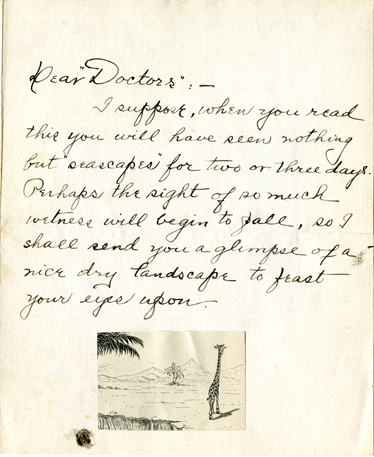 Dear "Doctors":—
I suppose, when you read
this you will have seen nothing
but "seascapes" for two or three days.
Perhaps the sight of so much
wetness will begin to pall, so I
shall send you a glimpse of a
nice dry landscape to feast
your eyes upon.